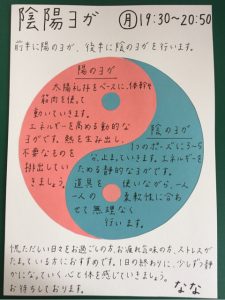 陰陽ヨガ ㊊19:30~20:50
前半に陽のヨガ、後半に陰のヨガを行います。
陽のヨガ
太陽礼拝をベースに、体幹や
筋肉を使って
動いていきます。
エネルギーを高める動的な
ヨガです。熱を生み出し、
不要なものを
排出してい
きましょう。
陰のヨガ
1つのポーズに3~5
分、止まっていきます。エネルギーを
ためる静的なヨガです。
道具を使いながら、一人
一人の柔軟性に合わ
せて無理なく
行います。
慌ただしい日々をお過ごしの方、お疲れ気味の方、ストレスが
たまっている方におすすめです。1日の終わりに、少しずつ静
かになっていく心と体を感じていきましょう。
お待ちしております。
なな